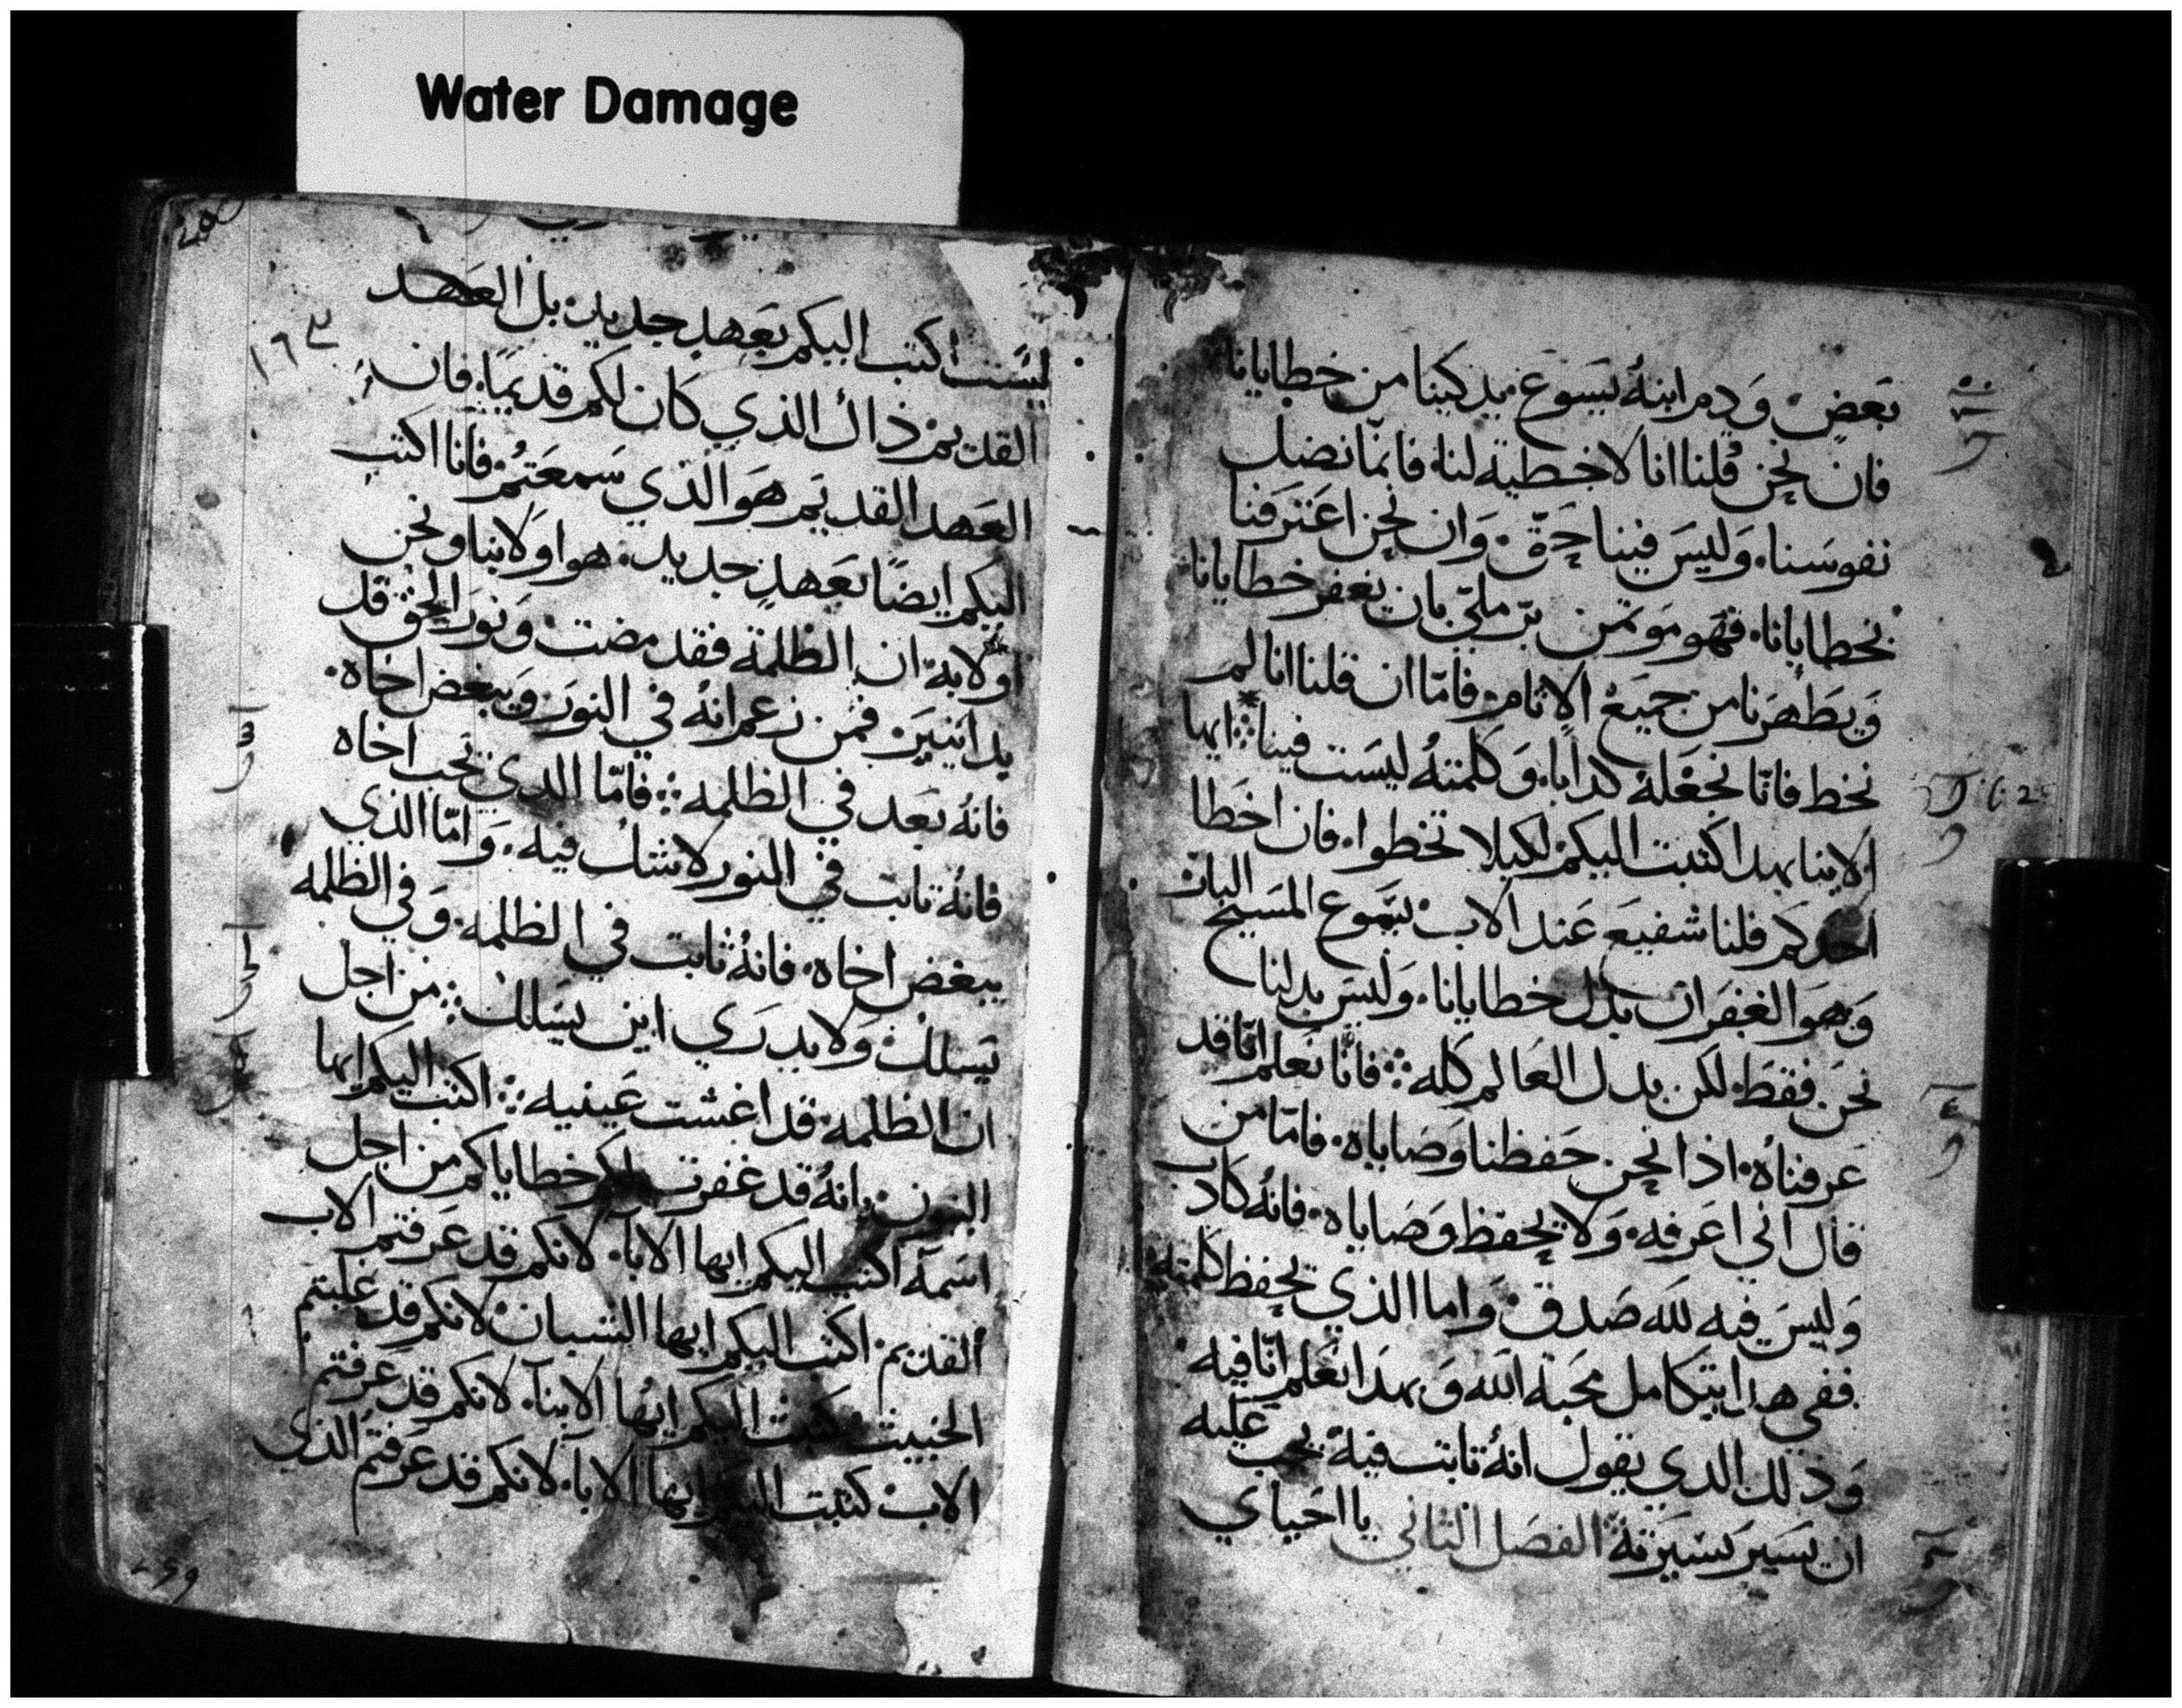 Water Damage
بعض. ودم ابنه يسوع يذكينا من خطايانا
فان نحن قلنا انا لا خطية لنا. فانما نضل
نفوسنا. وليس فينا حق. وان نحن اعترفنا
بخطايانا. فهو موتمن بر ملي بان يغفر خطايانا
ويطهرنا من جميع الاثام. فاما ان قلنا انا لم
نخط فانا نجعله كدابا. وكلمته ليست فينا ايها
الابنا بهدا كتبت اليكم لكيلا تخطوا. فان اخطا
احدكم فلنا شفيع عند الاب. يسوع المسيح البار
وهو الغفران بدل خطايانا. وليس بدلنا
نحن فقط. لكن بدل العالم كله. فانا نعلم انا قد
عرفناه. اذا نحن حفظنا وصاياه. فاما من
قال اني اعرفه. ولا يحفظ وصاياه. فانه كادب
وليس فيه لله صدق. واما الذي يحفظ كلمته
ففي هدا يتكامل محبة الله وبهدا نعلم انا فيه
وذلك الدي يقول انه تابت فيه يجب عليه
ان يسير كسيرته الفصل الثاني يا احباي
١٦٣
ليست اكتب اليكم بعهد جديد. بل العهد
القديم ذاك الذي كان لكم قديما. فان
العهد القديم هو الذي سمعتم. فانا اكتب
اليكم ايضا بعهد جديد. هو اولا بنا ونحن
اولا به. ان الظلمة فقد مضت ونور الحق قد
بدا يتبين. فمن زعم انه في النور ويبغض اخاه.
فانه بعد في الظلمه. فاما الدي يحب اخاه
فانه تابت في النور لا شك فيه. واما الذي
يبغض اخاه. فانه ثابت في الظلمه. وفي الظلمه
يسلك. ولا يدري اين يسلك. من اجل
ان الظلمه. قد اغشت عينيه. اكتب اليكم ايها
البنون. انه قد غفرت لكم خطاياكم من اجل
اسمه اكتب اليكم ايها الابا. لانكم قد عرفتم الاب
القديم. اكتب اليكم ايها الشبان. لانكم قد غلبتم
الخبيث كتبت اليكم ايها الابنآ. لانكم قد عرفتم
الاب. كتبت اليكم ايها الابا. لانكم قد عرفتم الذي